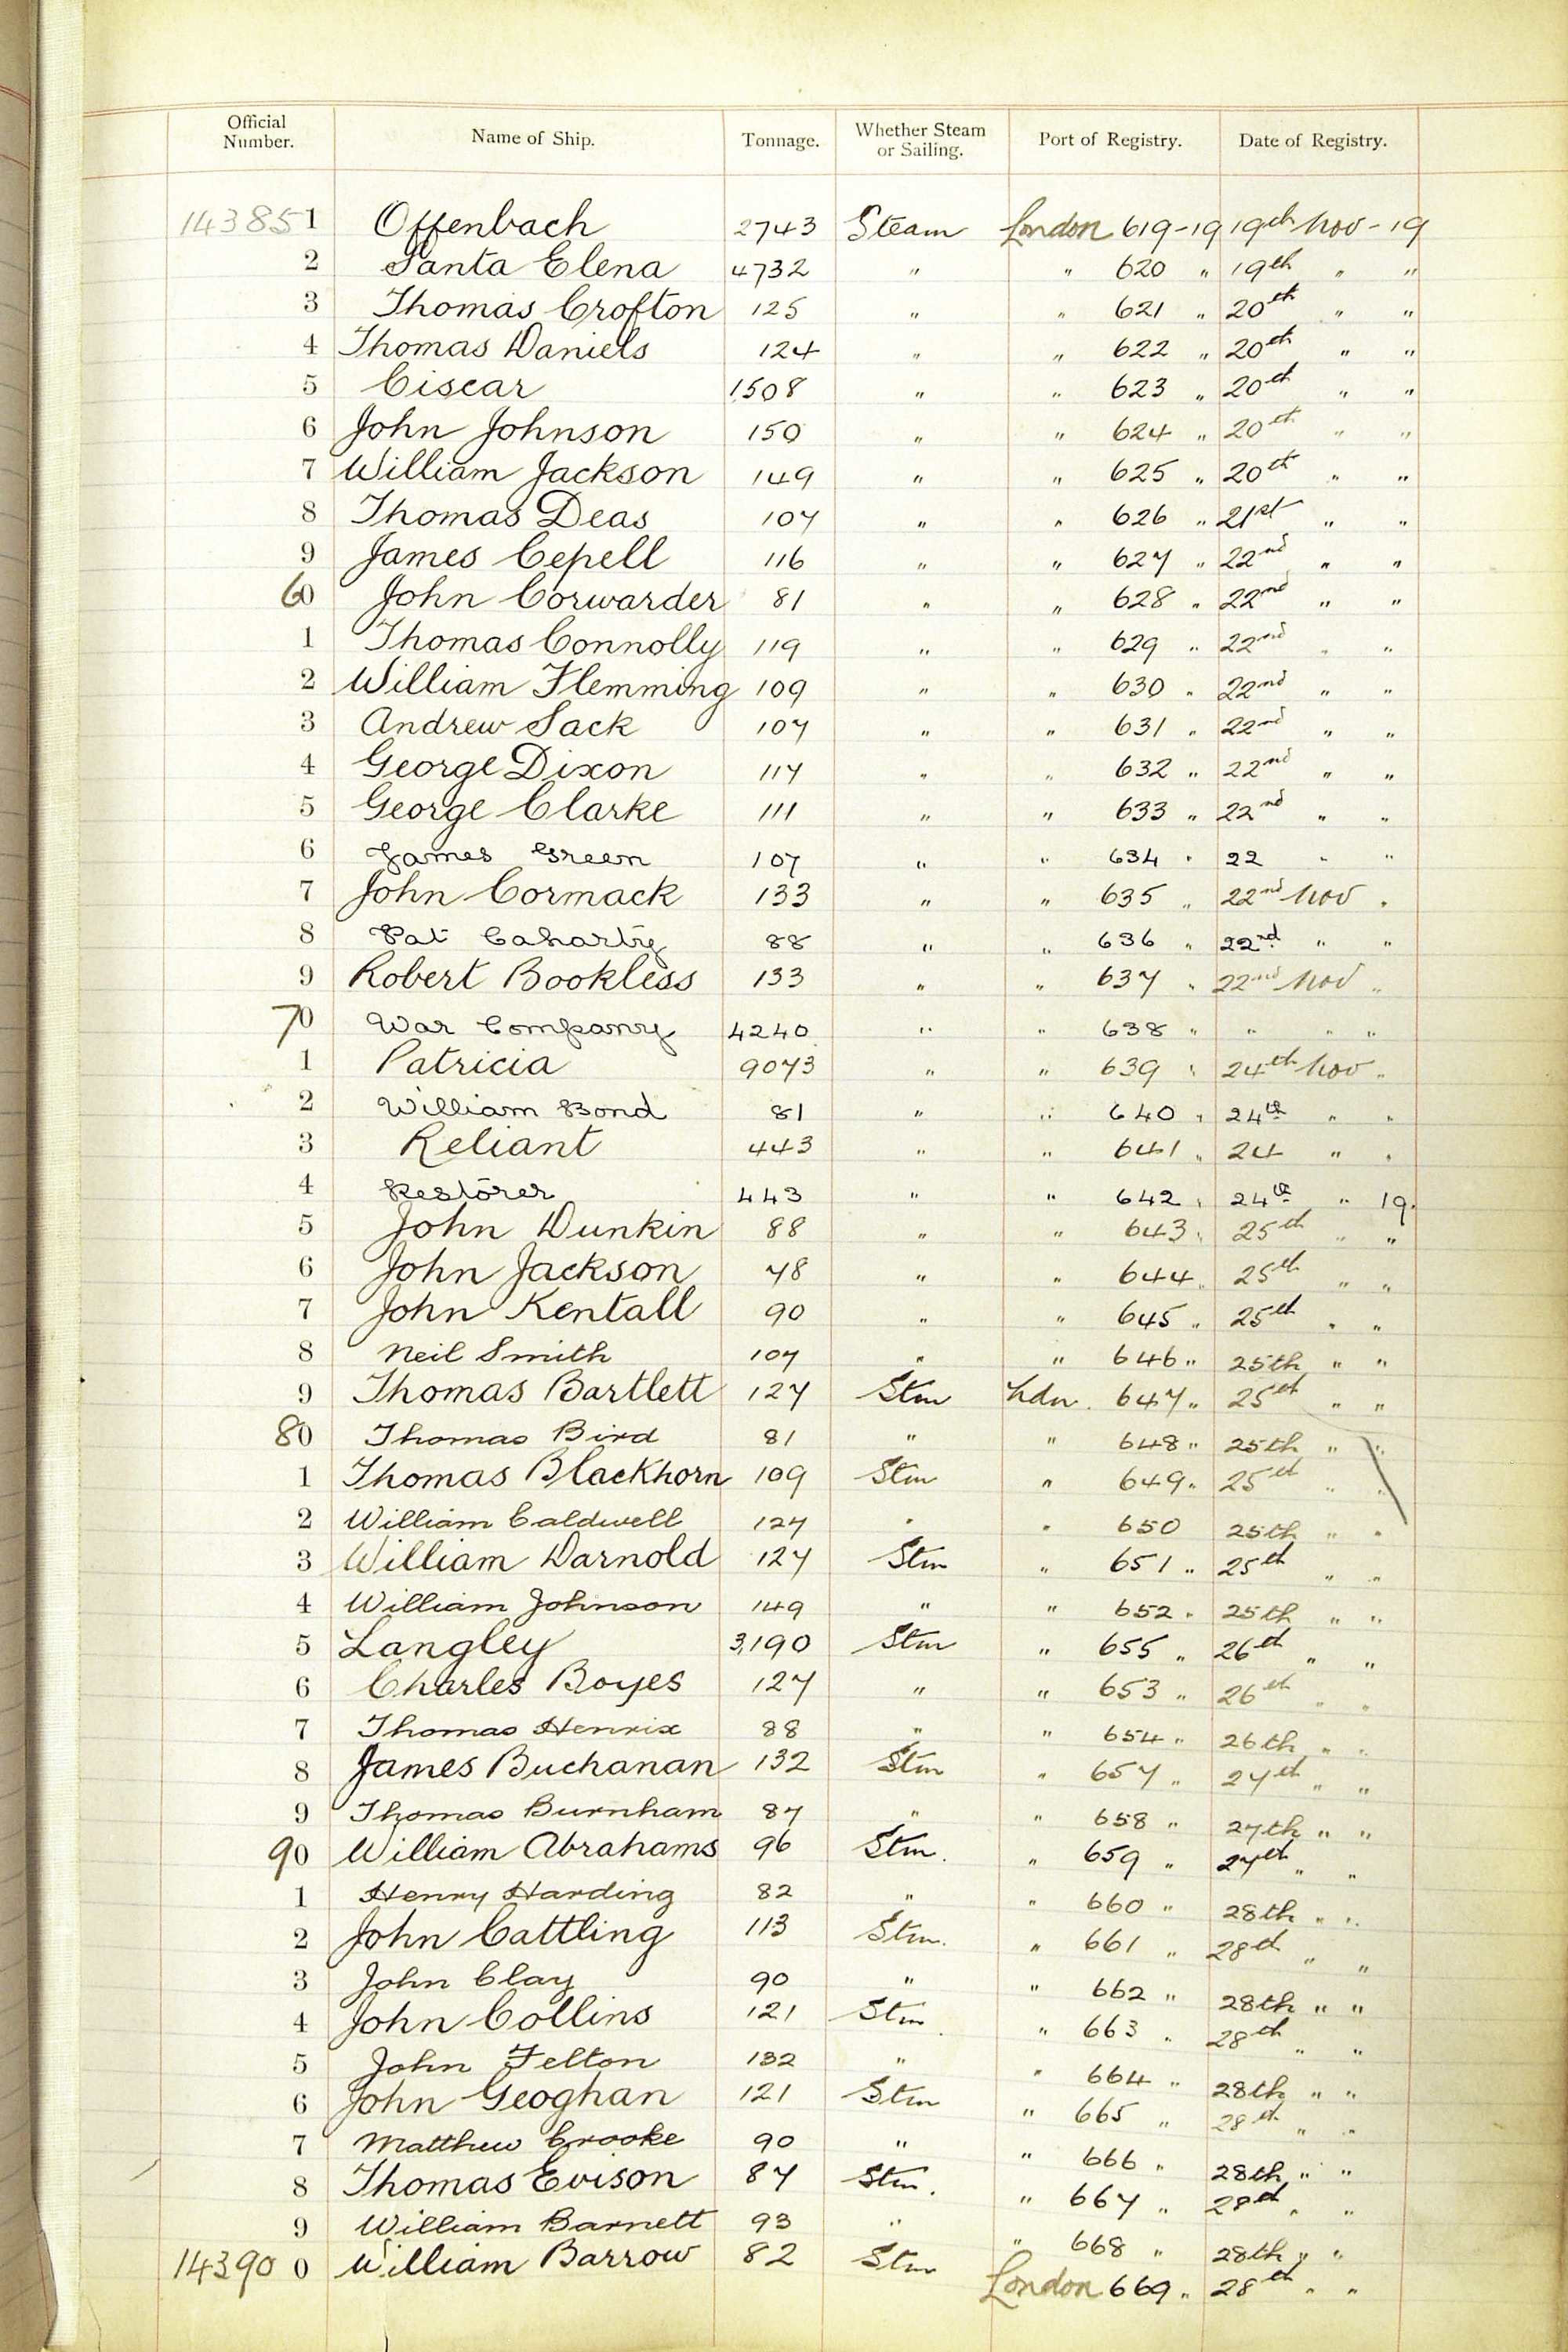 Official Number. Name of Ship. Tonnage. Whether Steam or Sailing. Port of Registry. Date of Registry.
143851 Offenbach 2743 Steam London 619-19 19th Nov-19
2 Santa Elena 4732 " " 620 " 19th " "
3 Thomas Crofton 125 " " 621 " 20th " "
4 Thomas Daniels 124 " " 622 " 20th " "
5 Ciscar 1508 " " 623 " 20th " "
6 John Johnson 150 " " 624 " 20th " "
7 William Jackson 149 " " 625 " 20th " "
8 Thomas Deas 107 " " 626 " 21st " "
9 James Cepell 116 " " 627 " 22nd " "
60 John Corwarder 81 " " 628 " 22nd " "
1 Thomas Connolly 119 " " 629 " 22nd " "
2 William Flemming 109 " " 630 " 22nd " "
3 Andrew Sack 107 " " 631 " 22nd " "
4 George Dixon 117 " " 632 " 22nd " "
5 George Clarke 111 " " 633 " 22nd " "
6 James Green 107 " " 634 " 22 " "
7 John Cormack 133 " " 635 " 22nd Nov "
8 Pat Caharty 88 " " 636 " 22nd " "
9 Robert Bookless 133 " " 637 " 22nd Nov "
70 War Company 4240 " " 638 " " " "
1 Patricia 9073 " " 639 " 24th Nov "
2 William Bond 81 " " 640 " 24th " "
3 Reliant 443 " " 641 " 24 " "
4 Restorer 443 " " 642 " 24th " 19.
5 John Dunkin 88 " " 643 " 25th " "
6 John Jackson 78 " " 644 " 25th " "
7 John Kentall 90 " " 645 " 25th " "
8 Neil Smith 107 " " 646 " 25th " "
9 Thomas Bartlett 127 Stm Ldn. 647 " 25th " "
80 Thomas Bird 81 " " 648 " 25th " "
1 Thomas Blackhorn 109 Stm " 649 " 25th " "
2 William Caldwell 127 " " 650 25th " "
3 William Darnold 127 Stm " 651 " 25th " "
4 William Johnson 149 " " 652 " 25th " "
5 Langley 3,190 Stm " 655 " 26th " "
6 Charles Boyes 127 " " 653 " 26th " "
7 Thomas Henrix 88 " " 654 " 26th " "
8 James Buchanan 132 Stm " 657 " 27th " "
9 Thomas Burnham 87 " " 658 " 27th " "
90 William Abrahams 96 Stm. " 659 " 27th " "
1 Henry Harding 82 " " 660 " 28th " "
2 John Cattling 113 Stm. " 661 " 28th " "
3 John Clay 90 " " 662 " 28th " "
4 John Collins 121 Stm. " 663 " 28th " "
5 John Felton 132 " " 664 " 28th " "
6 John Geoghan 121 Stm " 665 " 28th " "
7 Matthew Crooke 90 " " 666 " 28th " "
8 Thomas Evison 87 Stm. " 667 " 28th " "
9 William Barnett 93 " " 668 " 28th " "
143900 William Barrow 82 Stm London 669 " 28th " "